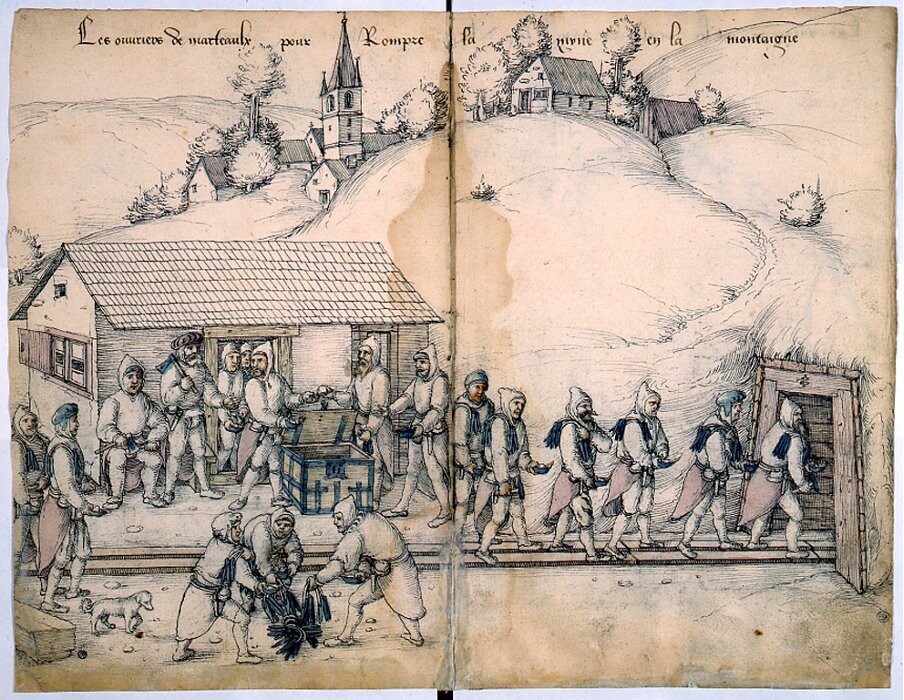 Les ouuriers de marteaulx pour Rompre la myne en la montaigne